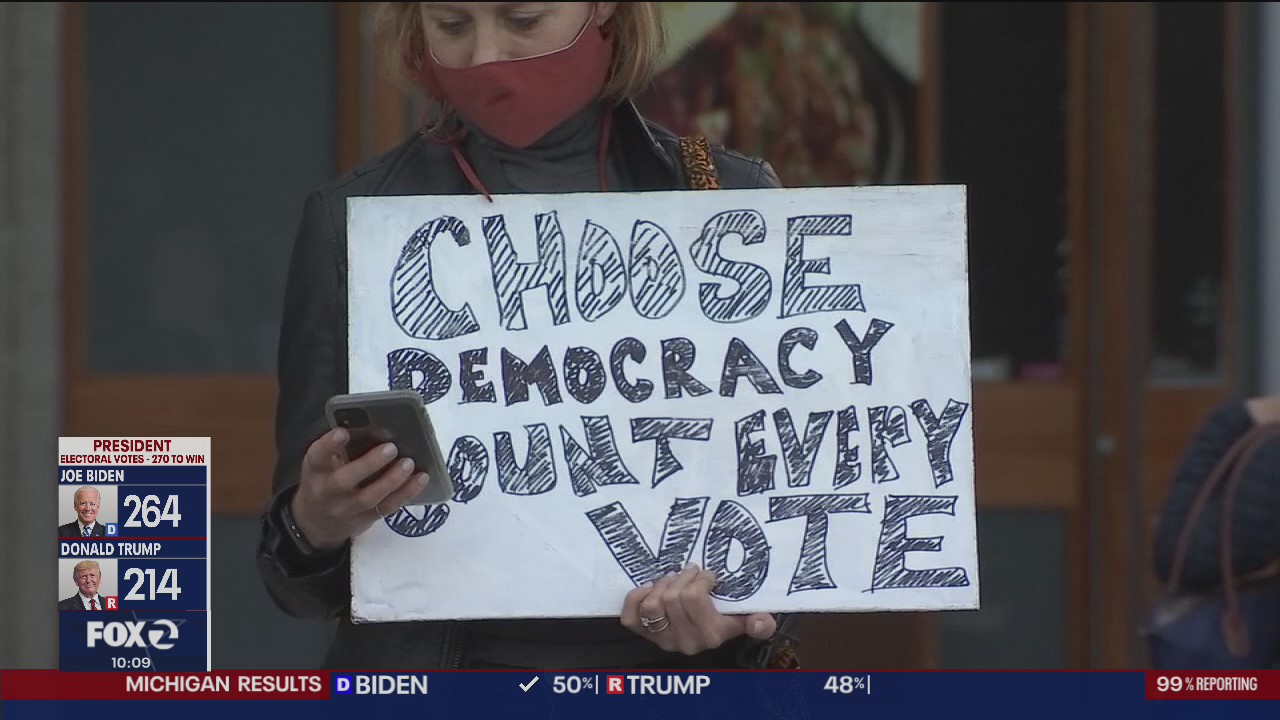 CHOOSE
DEMOCRACY
COUNT EVERY
VOTE
PRESIDENT
ELECTORAL VOTES - 270 TO WIN
JOE BIDEN
264
D
DONALD TRUMP
214
R
FOX 2
10:09
MICHIGAN RESULTS D BIDEN ✓ 50% | R TRUMP 48% | 99% REPORTING